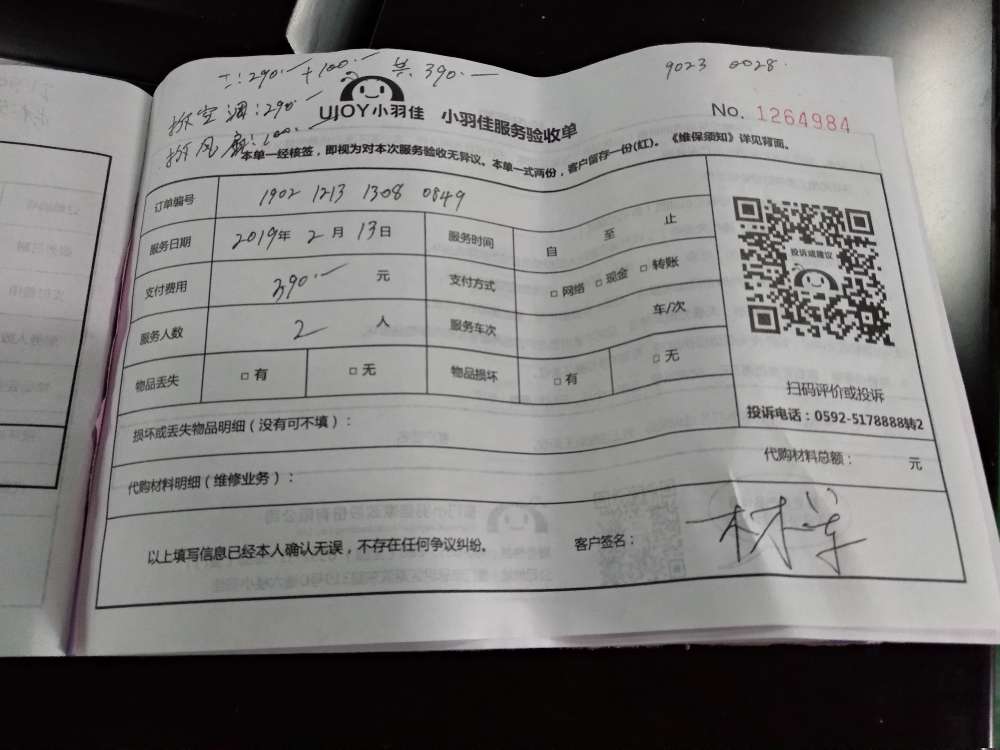 二:290.一+100.一 共390.一
9023 0028.
拆空调:290.一
拆风扇:100.一
UJOY小羽佳 小羽佳服务验收单
No. 1264984
本单一经核签，即视为对本次服务验收无异议。本单一式两份，客户留存一份(红)。《维保须知》详见背面。
订单编号 1902 1213 1308 0849
服务日期 2019年 2月 13日 服务时间 自 至 止
支付费用 390.一 元 支付方式 □网络 □现金 □转账
服务人数 2 人 服务车次 车/次
物品丢失 □有 □无 物品损坏 □有 □无
投诉或建议
扫码评价或投诉
投诉电话：0592-5178888转2
损坏或丢失物品明细（没有可不填）：
代购材料明细（维修业务）： 代购材料总额： 元
以上填写信息已经本人确认无误，不存在任何争议纠纷。 客户签名： 林